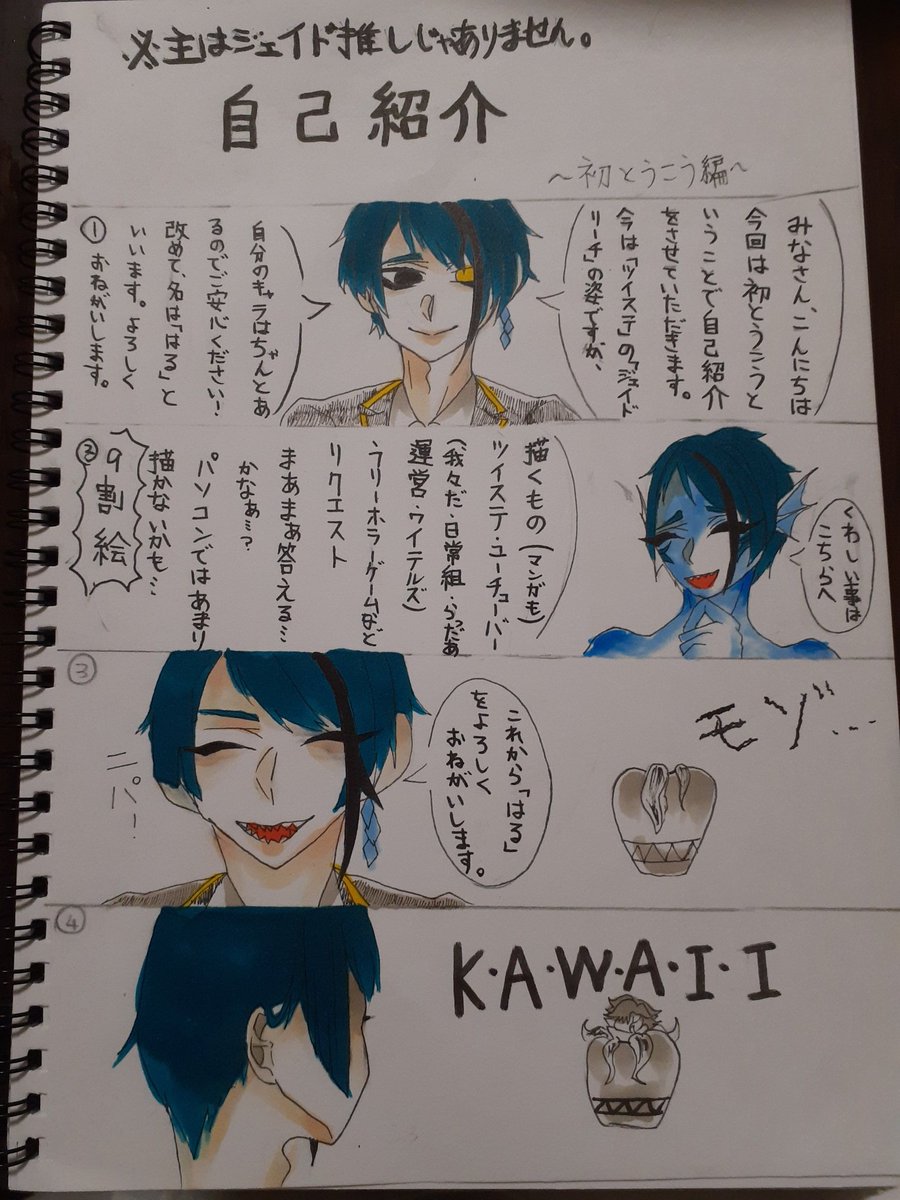 ※主はジェイド推しじゃありません。
自己紹介
～初とうこう編～
①
みなさん、こんにちは
今回は初とうこうと
いうことで自己紹介
をさせていただきます。
今は「ツイステ」の「ジェイド
リーチ」の姿ですが、
自分のキャラはちゃんとあ
るのでご安心ください!
改めて、名は「はる」と
いいます。よろしく
おねがいします。
②
くわしい事は
こちらへ
描くもの(マンガも)
ツイステ・ユーチューバー
(我々だ・日常組・らっだぁ
運営・ワイテルズ)
フリーホラーゲームなど
リクエスト
まあまぁ答える…
かなぁ…?
パソコンではあまり
描かないかも…
9割絵
③
モゾ…
これから「はる」
をよろしく
おねがいします。
ニパー
④
K・A・W・A・I・I